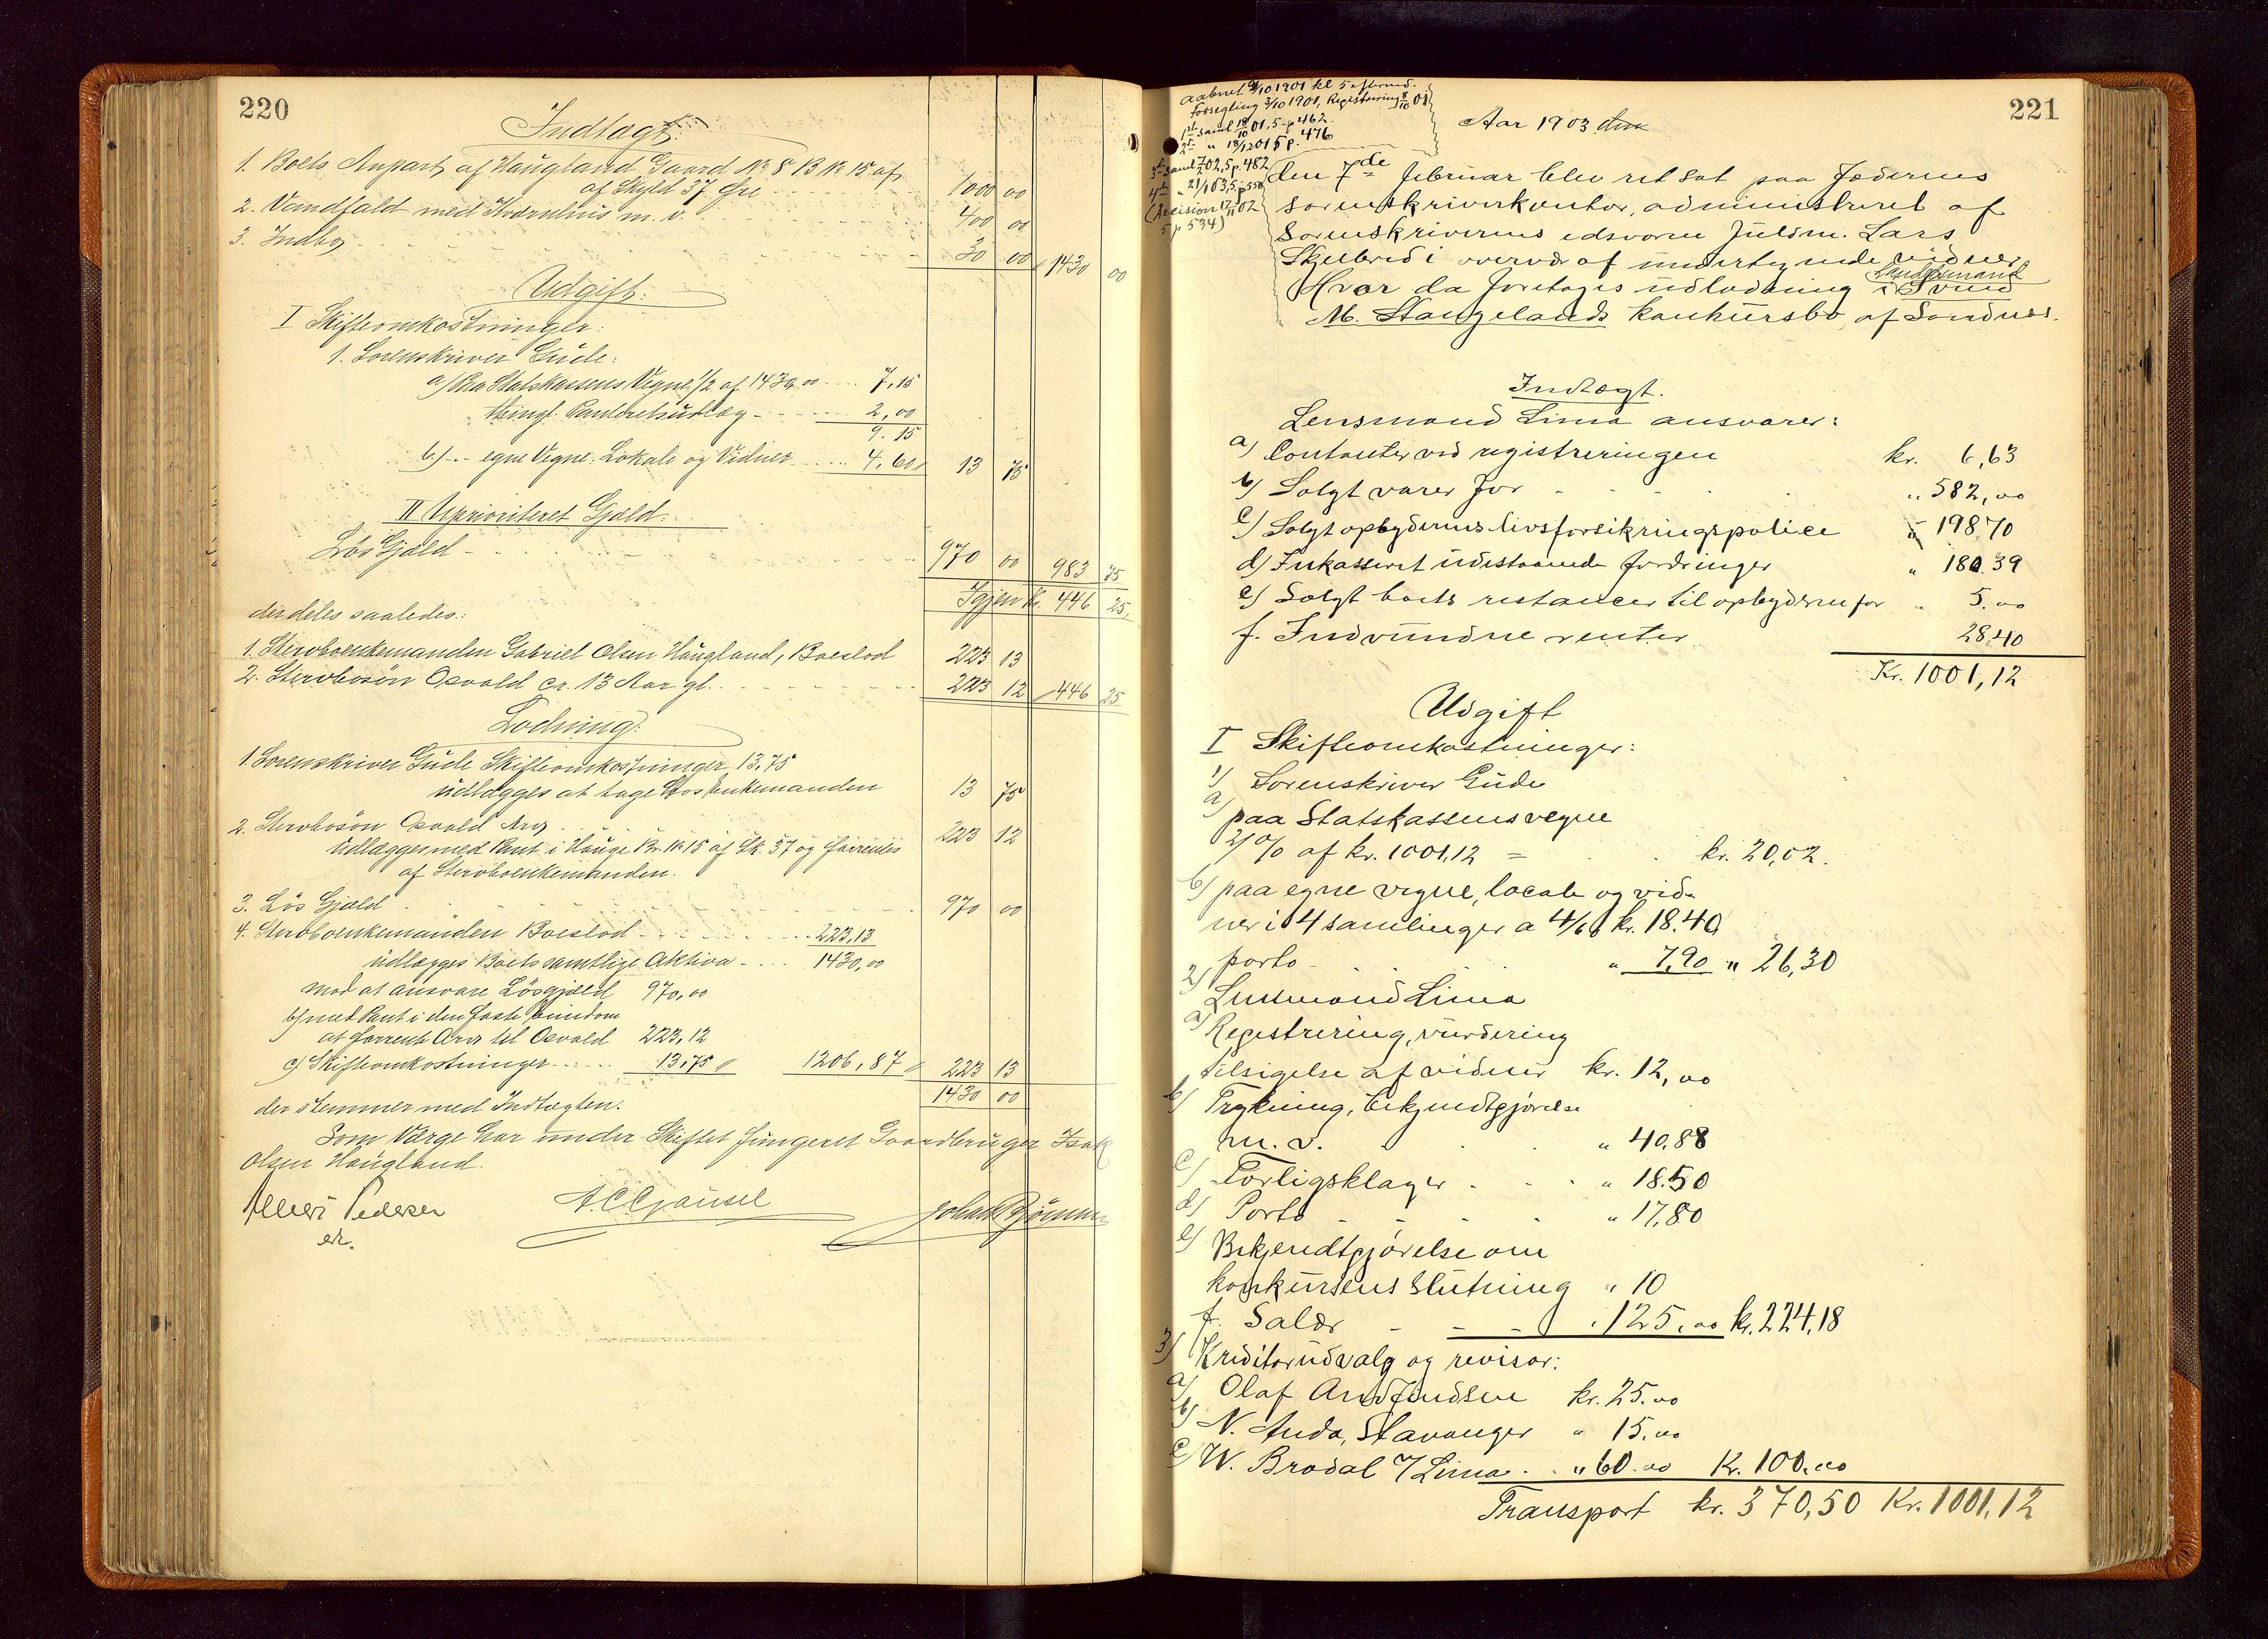 220
Indtægt:
1. Boets Anpart af Haugland Gaard No 8 B No 15 af
af Skyld 37 Øre 1000 00
2. Vandfald med Kværnhus m. v. 400 00
3. Indbo 30 00 1430 00
Udgift:
I Skifteomkostninger:
1. Sorenskriver Gude:
a) Paa Statskassens Vegne 1/2 af 1430,00 7,15
thingl. Panteretsudlæg 2,00
9.15
b) -"- egne Vegne: Lokale og Vidner 4,60 13 75
II Uprioriteret Gjæld:
Løs Gjæld 970 00 983 75
Igjen Kr. 446 25
der deles saaledes:
1. Stervboenkemanden Gabriel Olsen Haugland, Boeslod 223 13
2. Stervbosøn Osvald cr. 13 Aar gl. 223 12 446 25
Lodning:
1. Sorenskriver Gude Skifteomkostninger 13,75
udlægges at tage hos Enkemanden 13 75
2. Stervbosøn Osvald Arv 223 12
Udlægges med Pant i Hauge Br. No 15 af Sk. 37 og forrentes
af Stervboenkemanden.
3. Løs Gjæld 970 00
4. Stervboenkemanden Boeslod 223,13
udlægges Boets samtlige Aktiva 1430,00
mod at ansvare Løsgjæld 970,00
b) med Pant i den faste Eiendom
at forrente Arv til Osvald 223,12
c) Skifteomkostninger 13,75 1206,87 223 13
1430 00
der stemmer med Indtægten.
Som Værge har under Skiftet fungeret Gaardbruger Isak
Olsen Haugland.
Pedersen A.C. Gausel Johan
221
aabnet 2/10 1901 kl 5 efterm.
Forsegling 3/10 1901, Registrering 8/10 01
1st saml 18/10 01, 5 p 462
2t " 18/12 01 5 p. 476
3t saml 7 02, 5 p. 482
4t " 21/1 03, 5 p 550
(Decision 17/11 02
5 p 534)
Aar 1903 den
den 7de februar blev ret sat paa Jæderens
sorenskriverkontor, administreret af
sorenskriverens edsvorne fuldm. Lars
Skjelbred i overvær af undertegnede vidner
Hvor da foretages udlodning i Svend
M. Stangelands konkursbo af Sandnes.
Indtægt.
Lensmand Lima ansvarer:
a) Contanter ved registreringen kr. 6,63
b) Solgt varer for " 582,00
c) Solgt opbyderens livsforsikringspolice " 198 70
d) Inkasseret udestaaende fordringer " 180.39
e) Solgt boets restancer til opbyderen for " 5.00
f. Indvundne renter 28,40
Kr. 1001,12
Udgift
I Skifteomkostninger:
1) Sorenskriver Gude
a) paa Statskassens vegne
2 % af kr. 1001,12 = kr. 20,02.
b) paa egne vegne, locale og vid-
ner i 4 samlinger a 4/60 kr. 18.40
porto " 7,90 " 26,30
2) Lensmand Lima
a) Registrering, vurdering
tilsigelse af vidner kr. 12,00
b) Trykning, bekjendtgjørelse
m. v. " 40,88
c) Forligsklager " 18.50
d) Porto " 17,80
e) Bekjendtgjørelse om
konkursens Slutning " 10
f. Salær " 125,00 kr. 224,18
3) Kreditorudvalg og revisor:
a) Olaf kr. 25.00
b) N. Anda, Stavanger " 15.00
c) W. Brodal / Lima " 60.00 Kr. 100.00
Transport kr. 370,50 Kr. 1001,12